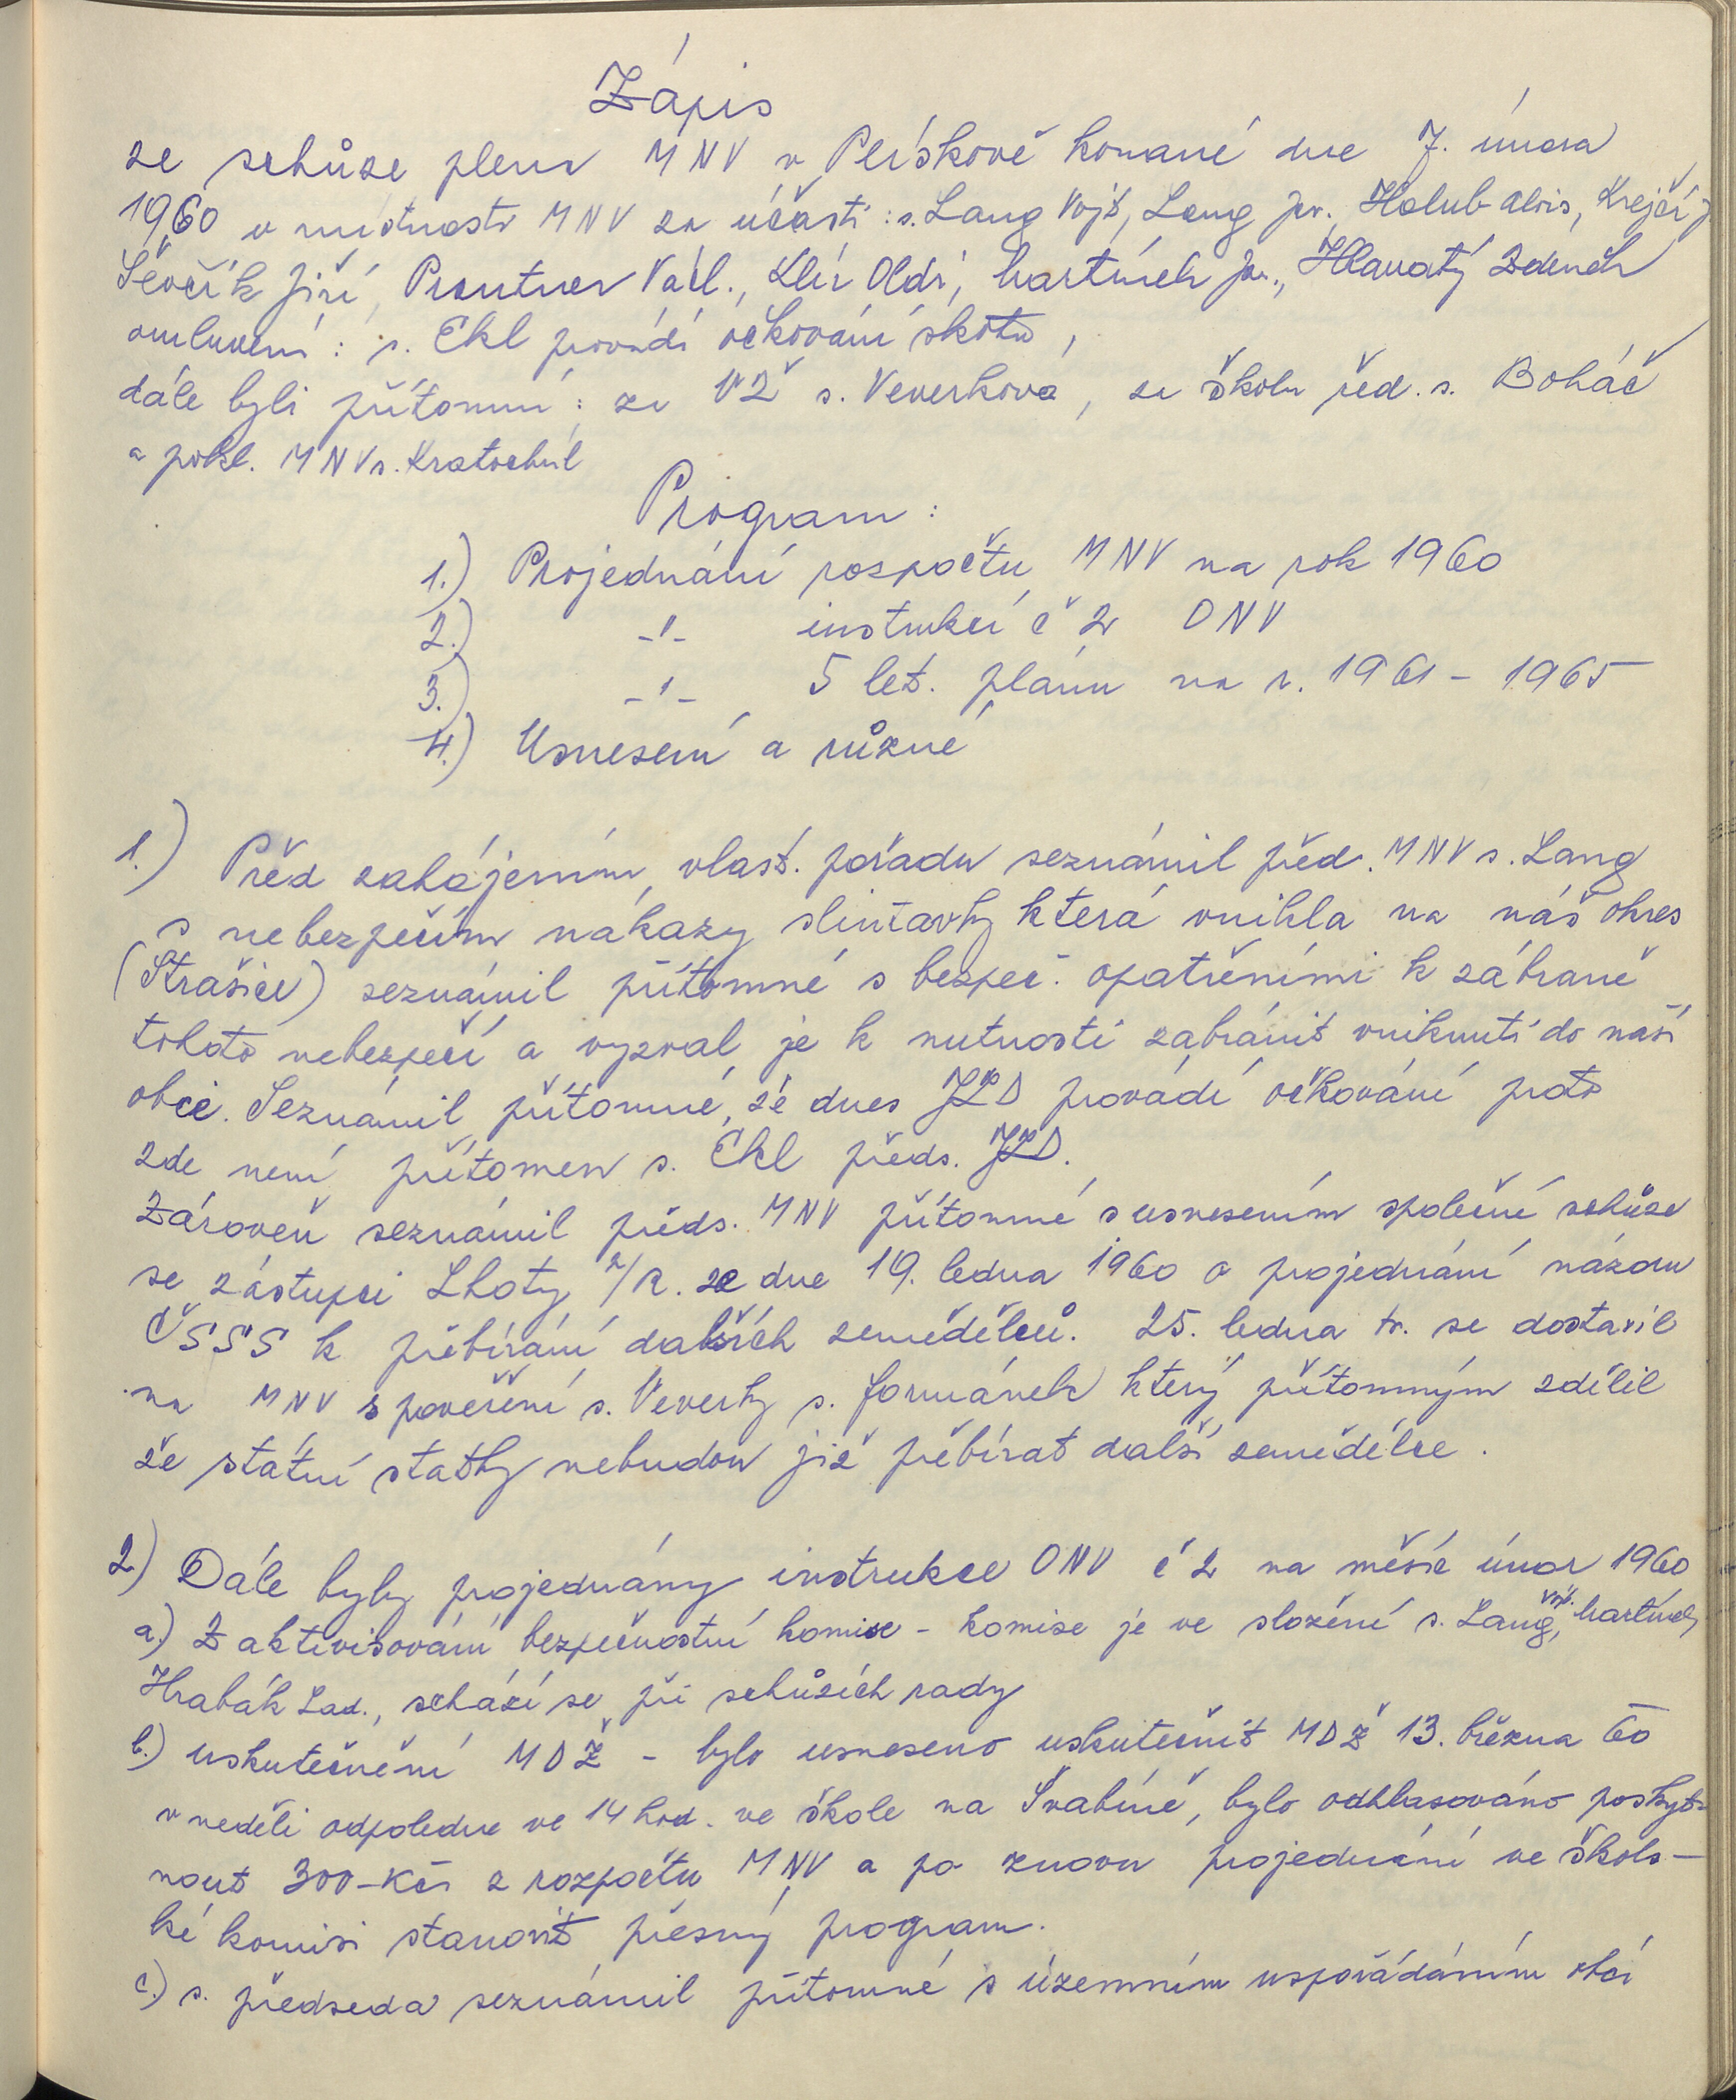 Zápis
ze schůze plena MNV v Plískově konané dne 7. února
1960 v místnosti MNV za účasti: s. Lang Vojt, Lang jar., Holub Alois, Krejčí j
Ševčík Jiří, Prantner Václ., Klír Oldř, Martínek jar., Hlavatý Zdeněk
omluveni: s. Ekl provádí očkování skotu,
dále byli přítomni: za VŽ s. Veverková, za školu řed. s. Boháč
a pokl. MNV s. Kratochvíl
Program:
1.) Projednání rospočtu MNV na rok 1960
2.) -"- instrukcí č 2 ONV
3.) -"- 5 let. plánu na r. 1961 - 1965
4.) Usnesení a různé
1.) Před zahájením vlast. pořadu seznámil před. MNV s. Lang
s nebezpečím nákazy slintavky která vnikla na náš okres
(Strašice) seznámil přítomné s bezpeč. opatřeními k zábraně
tohoto nebezpečí a vyzval je k nutnosti zabránit vniknutí do naší
obce. Seznámil přítomné, že dnes JZD provádí očkování proto
zde není přítomen s. Ekl předs. JZD.
Zároveň seznámil předs. MNV přítomné s usnesením společné schůze
se zástupci Lhoty p/R. ze dne 19. ledna 1960 o projednání názoru
ČSSS k přebírání dalších zemědělců. 25. ledna tr. se dostavil
na MNV s pověření s. Veverky s. Formánek který přítomným sdělil
že státní statky nebudou již přebírat další zemědělce.
2) Dále byly projednány instrukce ONV č 2 na měsíc únor 1960
a.) Zaktivisování bezpečnostní komise - komise je ve složení s. Lang Vojt., Martínek,
Hrabák Lad., schází se při schůzích rady
b.) uskutečnění MDŽ - bylo usneseno uskutečnit MDŽ 13. března 60
v neděli odpoledne ve 14 hod. ve škole na Švabíně, bylo odhlasováno poskyt-
nout 300-Kčs z rozpočtu MNV a po znovu projednání ve škols-
ké komisi stanovit přesný program.
c.) s. předseda seznámil přítomné s územním uspořádáním obcí